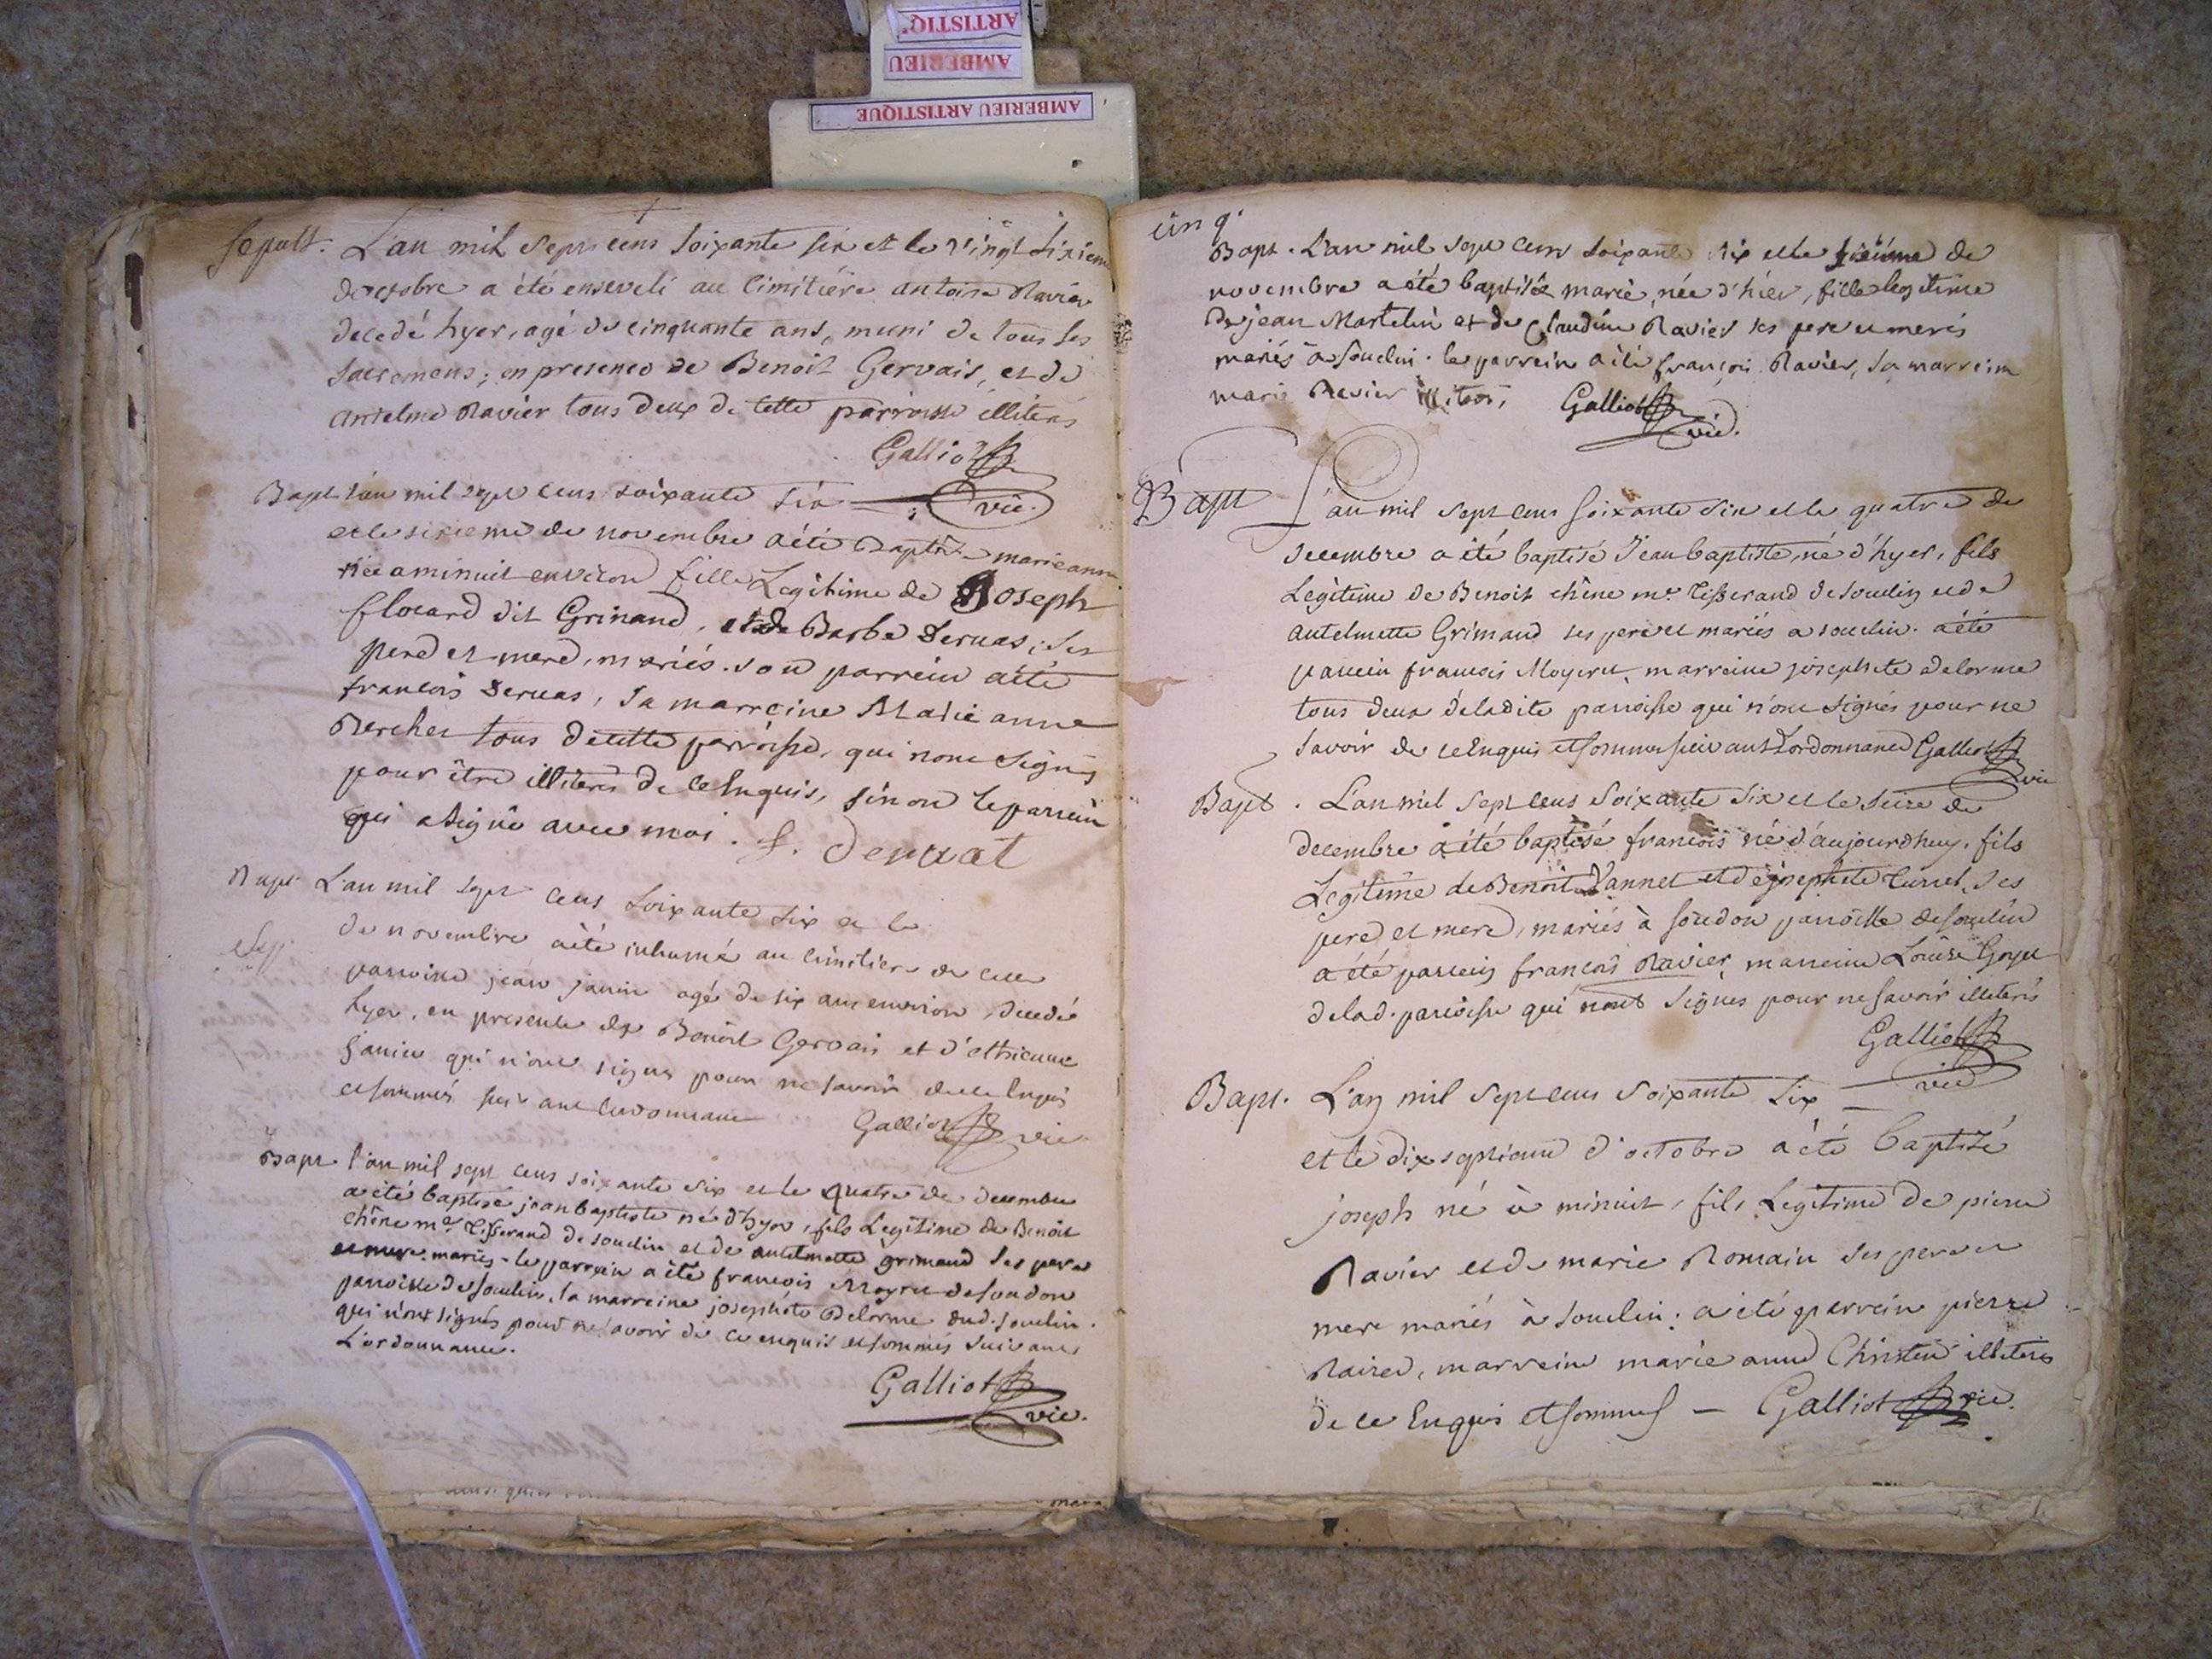 ARTISTIQ'
AMBERIEU
AMBERIEU ARTISTIQUE
sepult. L'an mil sept cens soixante six et le vingt sixieme
doctobre a été enseveli au Cimitière antoine Ravier
decedé hyer, agé de cinquante ans, muni de tous ses
sacremens; en presence de Benoit Gervais, et de
antelme Ravier tous deux de cette parroisse illiterés
Galliot
vic.
Bapt l'an mil sept cens soixante six
et le sixieme de novembre a été Baptisée marie anne
née a minuit environ fille Legitime de Joseph
flocard dit Grinand, et de Barbe Dervas, ses
pere et mere, mariés. son parrein a été
francois Dervas, sa marreine Marie anne
Bercher tous de cette parroisse, qui n'ont signés
pour être illiterés de ce Enquis, sinon le parrein
qui a signé avec moi. f. dervat
Bapt L'an mil sept cens soixante six et le
Sep. de novembre a été inhumé au cimitiere de cette
parroisse jean janin agé de six ans environ, decedé
hyer, en presence de Benoit Gervais et d'ethienne
janin qui n'ont signés pour ne savoir de ce Enquis
et sommés suivant Lordonnance Galliot vic.
Bapt. l'an mil sept cens soixante six et le quatre de decembre
a été baptisé jean baptiste né d'hyer, fils Legitime de Benoit
chêne me. Tisserand de souclin et de antelmette grimand ses pere
et mere mariés - le parrein a été francois Moyret de soudon
parroisse de souclin, la marreine josephete Delorme dud. souclin.
qui n'ont signés pour ne savoir de ce enquis et sommés suivant
L'ordonnance.
Galliot
vic.
cinq.
Bapt. L'an mil sept cens soixante six et le de
novembre a été baptisée marie née d'hier, fille legitime
De jean Martelin et de Claudine Ravier ses pere et meres
mariés à souclin. le parrein a été françois Ravier, sa marreine
marie Ravier Galliot
vic.
Bapt L'an mil sept cens soixante six et le quatre de
decembre a été baptisé Jean baptiste, né d'hyer, fils
Legitime de Benoit chêne me. Tisserand de souclin et de
antelmette Grimand ses pere et mariés a souclin. a été
parrein francois Moyret, marreine josephete delorme
tous deux de ladite parroisse qui n'ont signés pour ne
savoir de ce Enquis et sommés suivant Lordonnance Galliot
vic
Bapt. L'an mil sept cens soixante six et le seize de
decembre a été baptisé francois né d'aujourdhuy, fils
Legitime de Benoit Vannet et de josephete Curret, ses
pere et mere, mariés à soudon parroisse de souclin
a été parrein francois Ravier, marreine Louise Goyet
de lad. parroisse qui n'ont signés pour ne savoir illiterés
Galliot
vic
Bapt. L'an mil sept cens soixante six
et le dix septieme d'octobre a été baptisé
joseph né à minuit, fils Legitime de pierre
Ravier et de marie Romain ses pere et
mere mariés à souclin; a été parrein pierre
marreine marie anne Christin illiterés
de ce Enquis et sommés - Galliot vic.